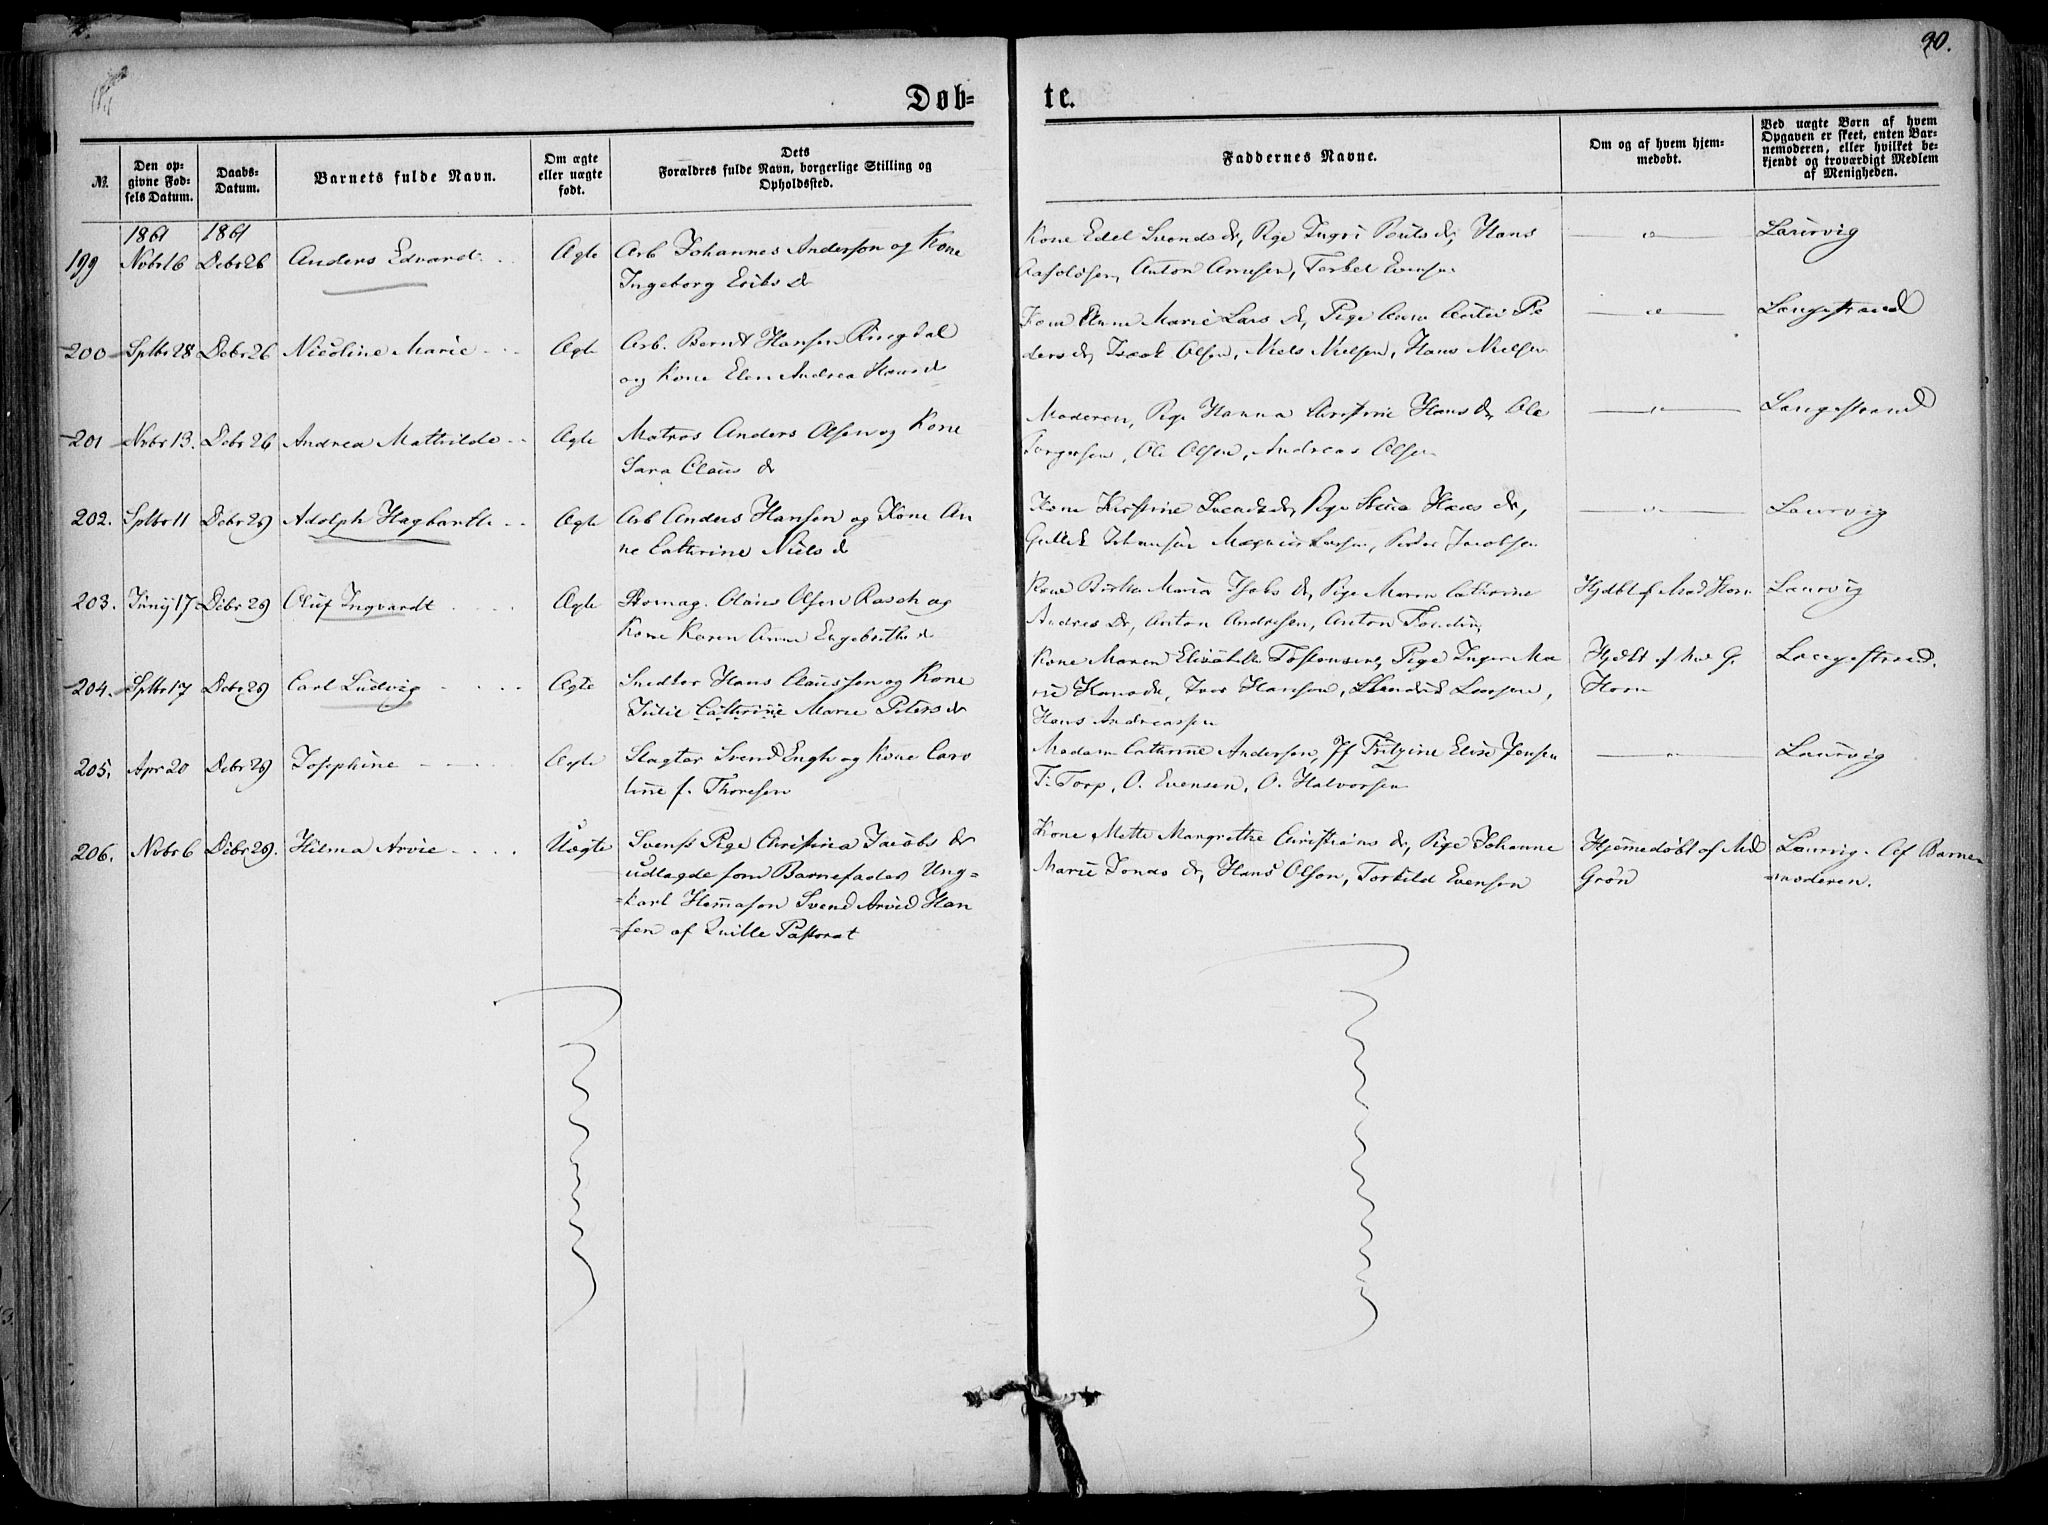 90.
Døb= te.
№.
Den op-
givne Fød-
sels Datum.
Daabs-
Datum.
Barnets fulde Navn.
Om ægte
eller uægte
født.
Dets
Forældres fulde Navn, borgerlige Stilling og
Opholdssted.
Faddernes Navne.
Om og af hvem hjem-
medøbt.
Ved uægte Børn af hvem
Opgaven er skeet, enten Bar-
nemoderen, eller hvilket be-
kjendt og troværdigt Medlem
af Menigheden.
1861 1861
199 Nvbr 16 Debr 26 Anders Edvard Ægte Arb Johannes Anderson og Kone
Ingeborg Eriks d
Kone Edel Svends dr, Pige Ingri Pouls dr, Hans
Anton Arnesen, Torkel Evensen
Laurvig
200 Sptbr 28 Debr 26 Nicoline Marie Ægte Arb. Bernt Hansen Ringdal
og Kone Elen Andrea Hans d
Kone Anne Marie Lars d, Pige Pe
ders d, Isaak Olsen, Niels Nielsen, Hans Nielsen
Langestrand
201 Nvbr 13. Debr 26 Andrea Mathilde Ægte Matros Anders Olsen og Kone
Sara Claus d
Moderen, Pige Hanna Christine Hans dr, Ole
Torgersen, Ole Olsen, Andreas Olsen
Langestrand
202. Sptbr 11 Debr 29 Adolph Hagbarth Ægte Arb Anders Hansen og Kone An
ne Cathrine Niels d
Kone Kirstine dr, Pige Hans dr,
Johansen Magnus Larsen, Peder Jacobsen
Laurvig
203. Junij 17 Debr 29 Oluf Ingvardt Ægte Skomag. Claus Olsen Rasch og
Kone Karen Anne Engebreths d
Kone Maria Jacobs d, Pige Maren Cathrine
Andreas Dr, Anton Andresen, Anton
Hjdbt af Mad Horn
Laurvig
204. Sptbr 17 Debr 29 Carl Ludvig Ægte Snedker Hans Claussen og Kone
Julie Cathrine Marie Peters dr
Kone Maren Elisabeth Tostensen, Pige Inger Ma
rie Hans dr, Iver Hansen, Larsen,
Hans Andreassen
Hjdbt af Mad G.
Horn
Langestrand.
205. Apr 20 Debr 29 Josephine Ægte Slagter Svend Engh og Kone Caro
line f. Thoresen
Madam Cathrine Andersen, Jf Fritzine Elise Jensen
F. Torp, O. Evensen, O. Halvorsen
Laurvig
206. Nvbr 6 Debr 29. Hilma Arvie Uægte Svensk Pige Christina Jacobs dr
udlagde som Barnefader Ung=
=karl Svend Arvid Han
=sen af Qville Pastorat
Kone Mette Margrethe Christians dr, Pige Johanne
Marie Jonas dr, Hans Olsen, Torkild Evensen
Hjemmedøbt af Md
Grøn
Laurvig. Af Barne
moderen.